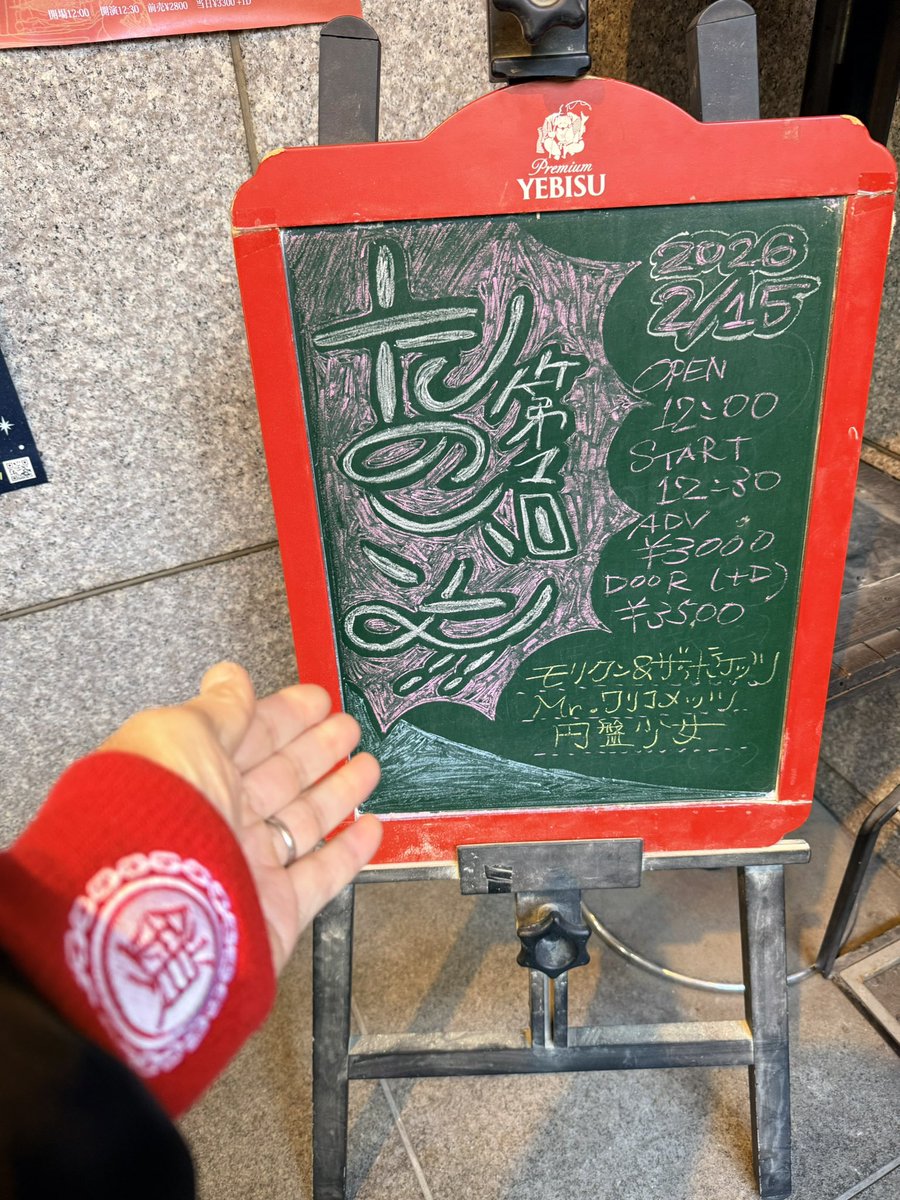 開場12:00 開演12:30 前売¥2800 当日¥3300 +1D
Premium
YEBISU
たのしい波
第2回
2026
2/15
OPEN
12:00
START
12:30
ADV
¥3000
DOOR (+D)
¥3500
モリケン&ザ・ポケッツ
Mr.ワリコメッツ
円盤少女